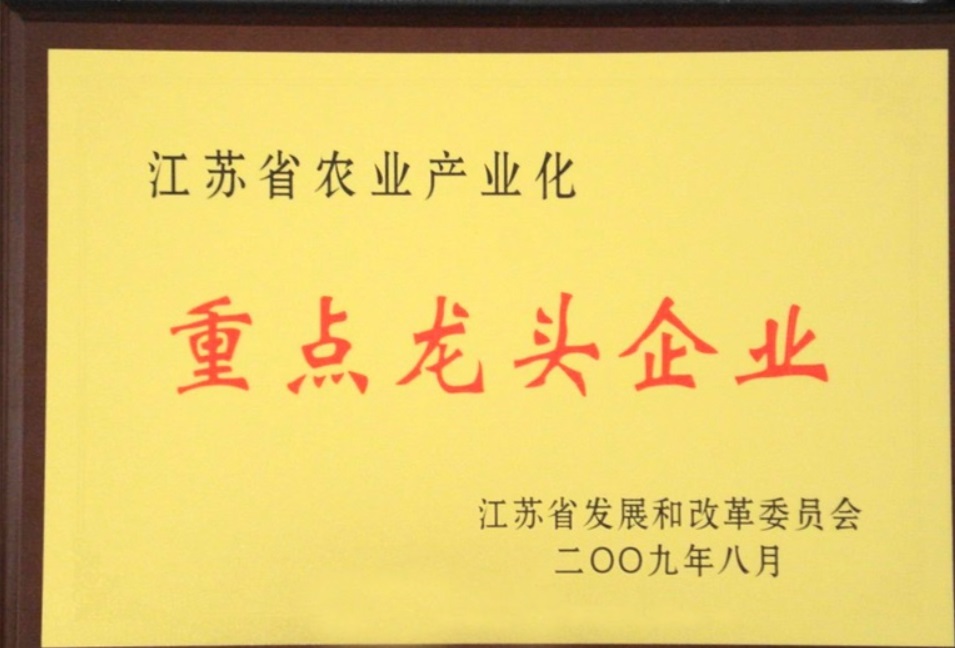 江苏省农业产业化
重点龙头企业
江苏省发展和改革委员会
二〇〇九年八月